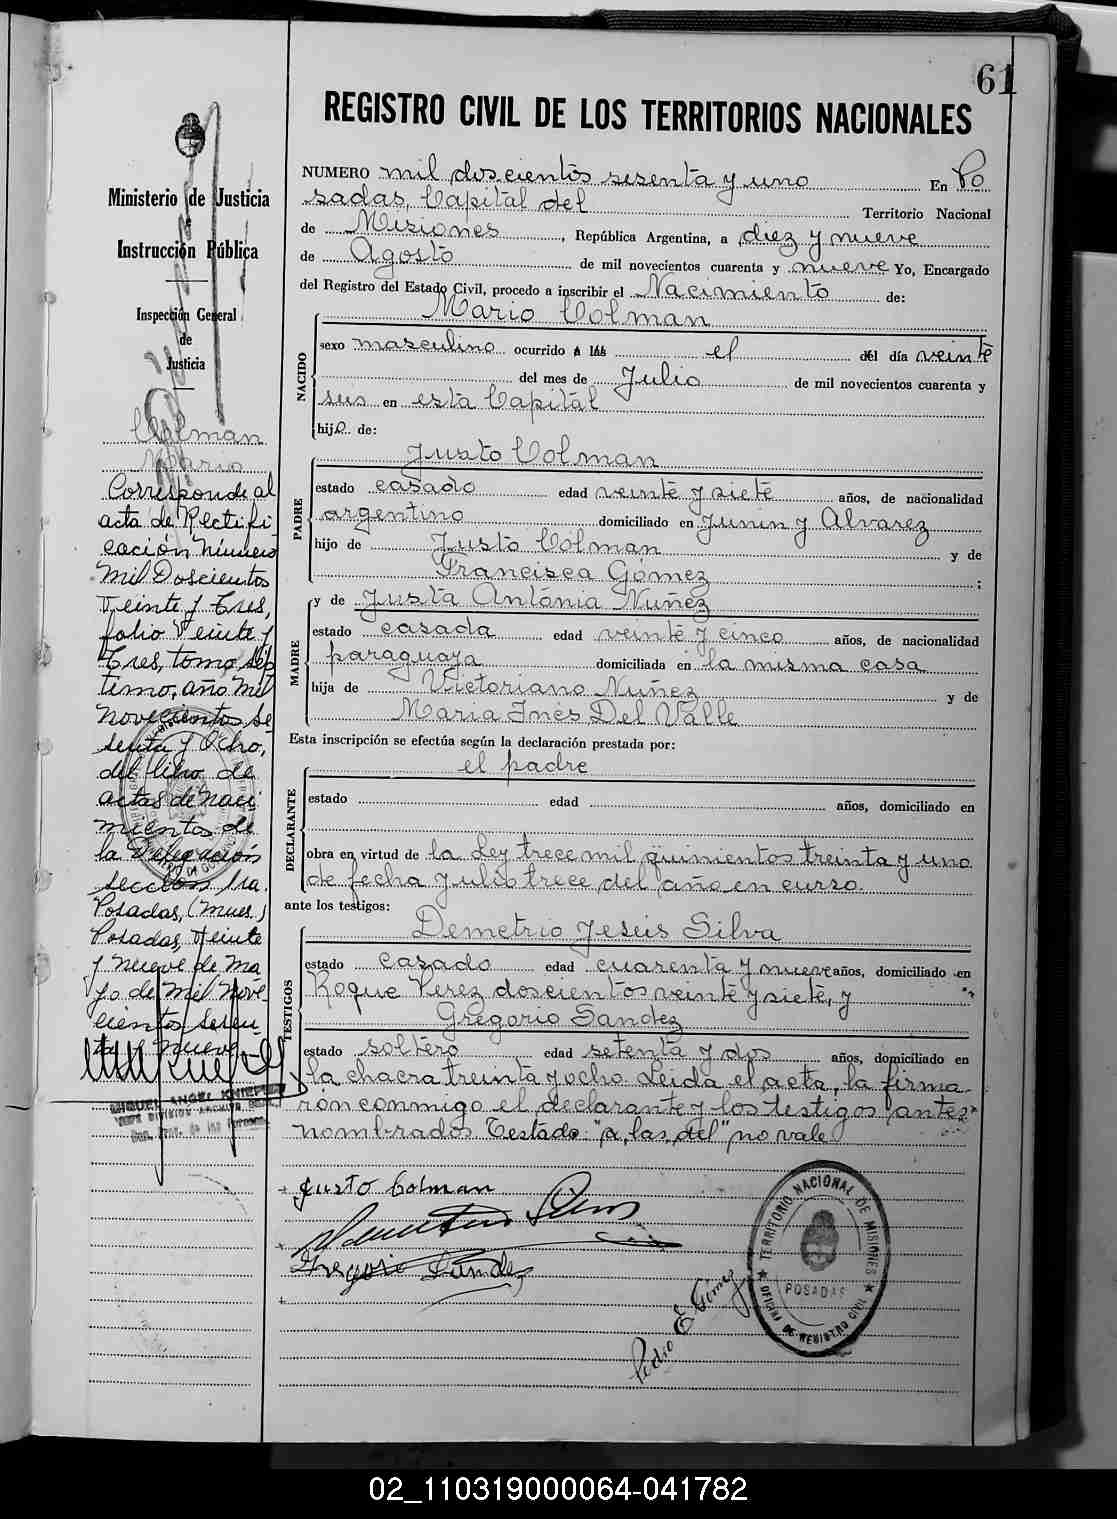 61
REGISTRO CIVIL DE LOS TERRITORIOS NACIONALES
Ministerio de Justicia
e
Instrucción Pública
Inspección General
de
Justicia
Colman
Mario
Corresponde al
acta de Rectifi
cación Número
Mil Doscientos
Veinte y Tres,
folio Veinte y
Tres, tomo Sép
timo, año Mil
Novecientos Se
senta y Ocho,
del libro de
actas de naci
mientos de
la Delegación
Sección 1ra.
Posadas, (Mnes.)
Posadas, Veinte
y Nueve de Ma
yo de Mil Nove
cientos Sesen
ta y Nueve
MIGUEL ANGEL
NUMERO mil doscientos sesenta y uno En Po
sadas, Capital del Territorio Nacional
de Misiones, República Argentina, a diez y nueve
de Agosto de mil novecientos cuarenta y nueve Yo, Encargado
del Registro del Estado Civil, procedo a inscribir el Nacimiento de:
NACIDO
Mario Colman
sexo masculino ocurrido a las el del día veinte
del mes de Julio de mil novecientos cuarenta y
seis en esta Capital
hijo de:
PADRE
Justo Colman
estado casado edad veinte y siete años, de nacionalidad
argentino domiciliado en Junin y Alvarez
hijo de Justo Colman y de
Francisca Gómez ;
MADRE
y de Justa Antonia Nuñez
estado casada edad veinte y cinco años, de nacionalidad
paraguaya domiciliada en la misma casa
hija de Victoriano Nuñez y de
Maria Inés Del Valle
Esta inscripción se efectúa según la declaración prestada por:
DECLARANTE
el padre
estado edad años, domiciliado en
obra en virtud de la Ley trece mil quinientos treinta y uno
de fecha Julio trece del año en curso.
ante los testigos:
TESTIGOS
Demetrio Jesús Silva
estado casado edad cuarenta y nueve años, domiciliado en
Roque Perez doscientos veinte y siete, y
Gregorio Sandez
estado soltero edad setenta y dos años, domiciliado en
la chacra treinta y ocho. Leida el acta, la firma-
ron conmigo el declarante y los testigos antes
nombrados Testado: "a, las, del" no vale
Justo Colman
Gregorio Sandez
Pedro E Gómez
TERRITORIO NACIONAL DE MISIONES
POSADAS
OFICINA DE REGISTRO CIVIL
02_110319000064-041782